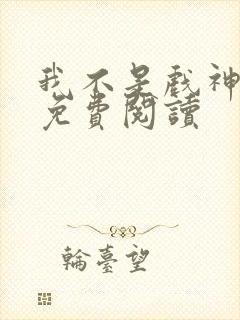 我不是戲神
免費閱讀
輪臺望